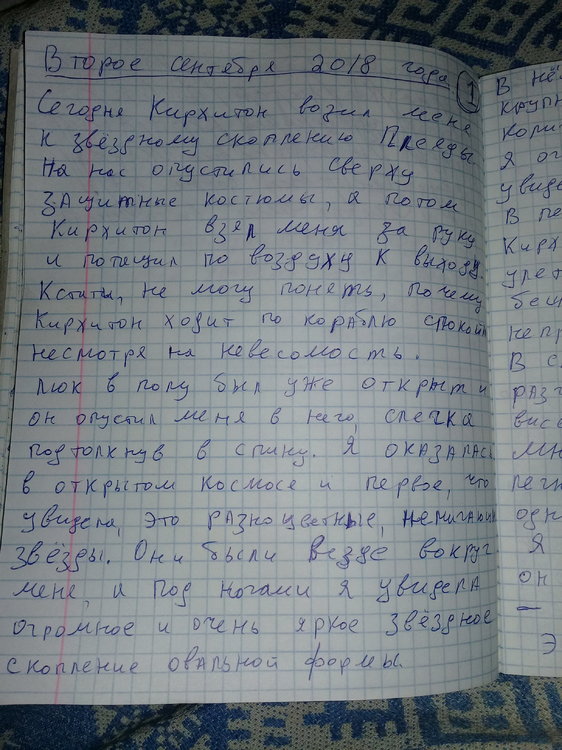 Второе сентября 2018 года
1
Сегодня Кирхитон возил меня
к звёздному скоплению Плеяды
На нас опустились сверху
защитные костюмы, а потом
Кирхитон взял меня за руку
и потащил по воздуху к выходу.
Кстати, не могу понять, почему
Кирхитон ходит по кораблю спокойно
несмотря на невесомость.
люк в полу был уже открыт и
он опустил меня в него, слегка
подтолкнув в спину. Я оказалась
в открытом космосе и первое, что
увидела, это разноцветные, немигающие
звёзды. Они были везде вокруг
меня, а под ногами я увидела
огромное и очень яркое звёздное
скопление овальной формы.
В нё
крупн
Я ог
увиде
В пе
Кирх
улет
беш
непр
В с
разг
висе
мн
легк
одн
Я
он
—
Э